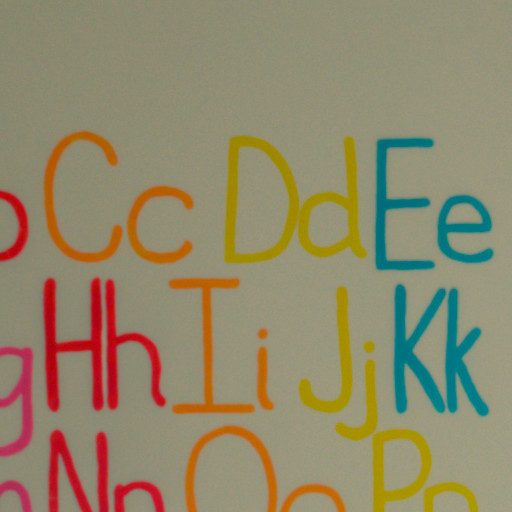 b Cc Dd Ee
g Hh Ii Jj Kk
Nn Oo Pp